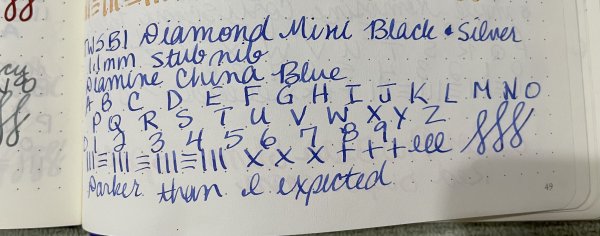 TWSBI Diamond Mini Black & Silver
1.1mm stub nib
Diamine China Blue
A B C D E F G H I J K L M N O
P Q R S T U V W X Y Z
0 1 2 3 4 5 6 7 8 9
X X X + + + eee
Darker than I expected
49